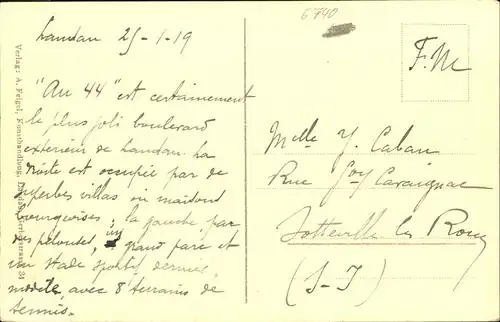 Landau 25-1-19
6740
"Au 44" est certainement
le plus joli boulevard
extérieur de Landau. La
droite est occupée par de
superbes villas ou maisons
bourgeoises; la gauche par
des pelouses, un grand parc et
un stade sportif dernier
modèle avec 8 terrains de
tennis.
Verlag: A. Feigel, Kunsthandlung, Landau,
F. M
Melle Y. Caban
Rue Goy Cavaignac
Sotteville les Rouen
(S-I)